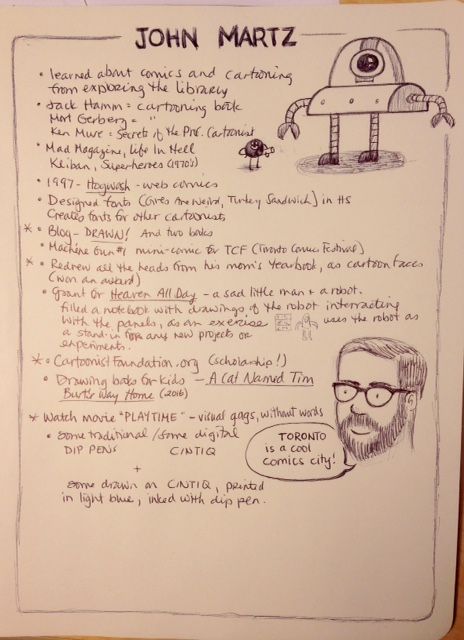 JOHN MARTZ
• learned about comics and cartooning
from exploring the library
• Jack Hamm = cartooning book
Mort Gerberg = "
Ken Muse = Secrets of the Prof. Cartoonist
• Mad Magazine, Life In Hell
Kliban, Superheroes (1970's)
• 1997 - Hogwash - web comics
• Designed fonts (Girls Are Weird, Turkey Sandwich) in HS
Creates fonts for other cartoonists
* • Blog - DRAWN! And two books
• Machine Gum #1 mini-comic for TCF (Toronto Comics Festival)
* • Redrew all the heads from his mom's Yearbook, as cartoon faces
(won an award)
• Grant for Heaven All Day - a sad little man + a robot.
filled a notebook with drawings of the robot interracting
with the panels, as an exercise uses the robot as
a stand-in for any new projects or
experiments.
* • CartoonistFoundation.org (scholarship!)
• Drawing books for kids - A Cat Named Tim
Burt's Way Home (2016)
* Watch movie "PLAYTIME" - visual gags, without words
• some traditional / some digital
DIP PENS CINTIQ
+
some drawn on CINTIQ, printed
in light blue, inked with dip pen.
TORONTO
is a cool
comics city!